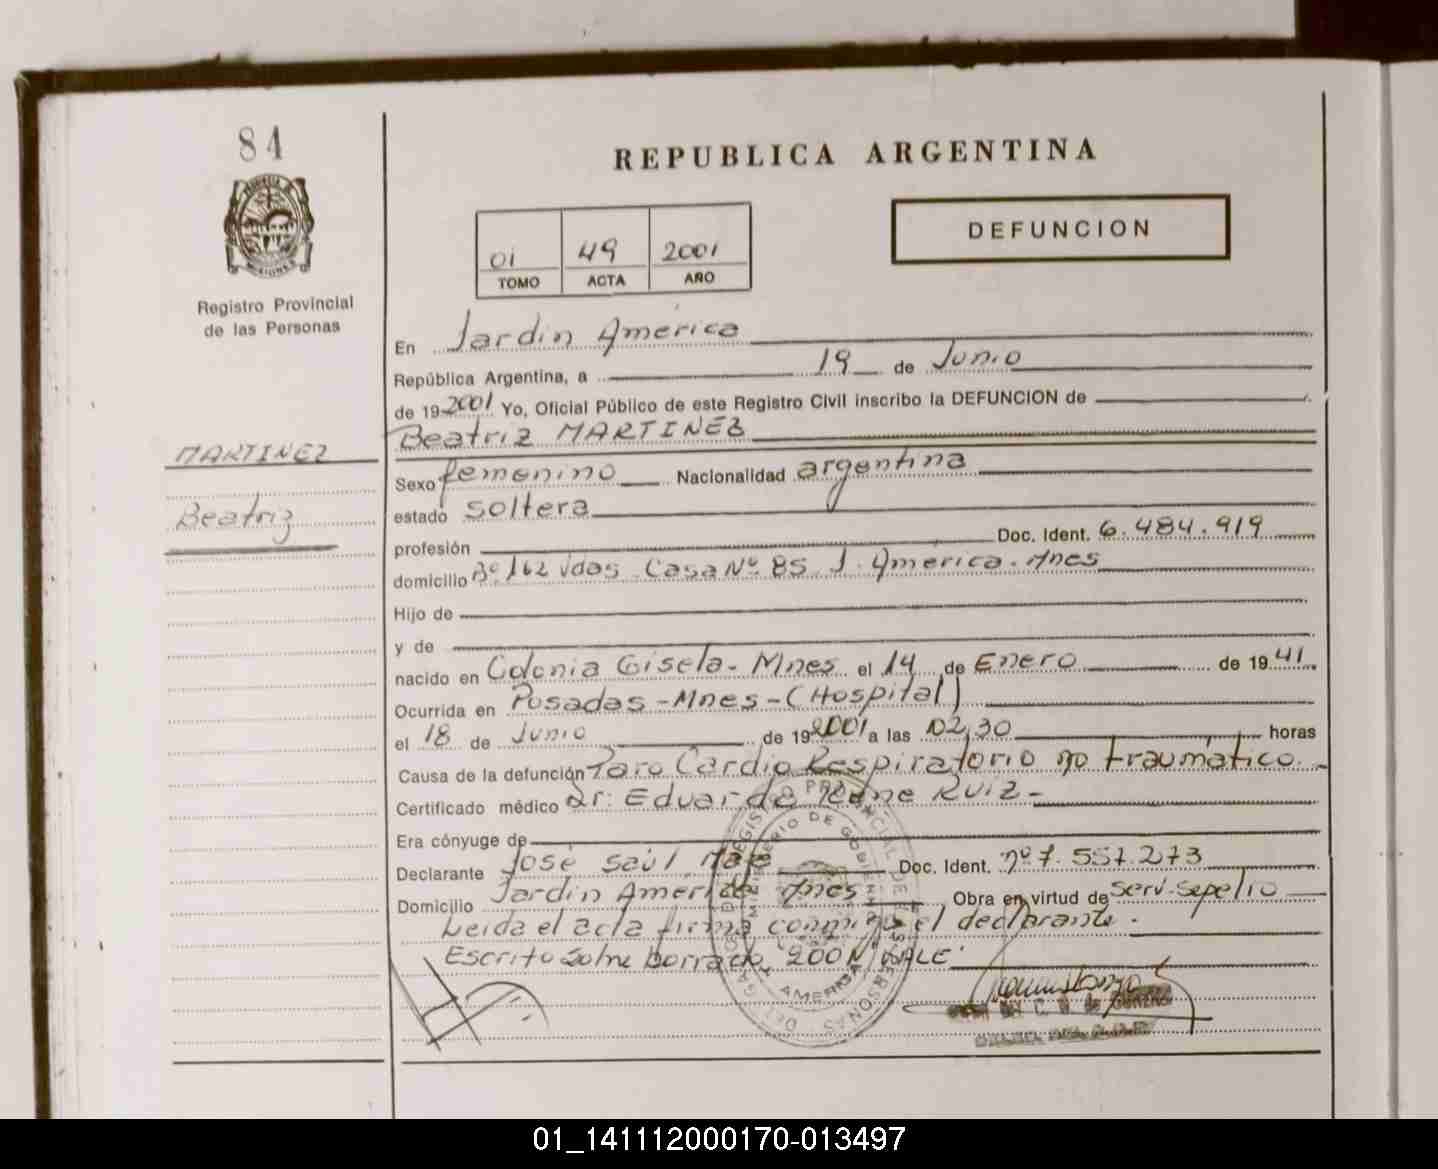 84
REPUBLICA ARGENTINA
DEFUNCION
01 49 2001
TOMO ACTA AÑO
Registro Provincial
de las Personas
En Jardin América
República Argentina, a 19 de Junio
de 192001 Yo, Oficial Público de este Registro Civil inscribo la DEFUNCION de
Beatriz MARTINEZ
MARTINEZ
Beatriz
Sexo femenino Nacionalidad argentina
estado soltera
profesión Doc. Ident. 6.484.919
domicilio Bº 162 vdas Casa Nº 85 J. América. Mnes
Hijo de
y de
nacido en Colonia Gisela - Mnes el 14 de Enero de 1941
Ocurrida en Posadas - Mnes - (Hospital)
el 18 de Junio de 192001 a las 02,30 horas
Causa de la defunción Paro Cardio Respiratorio no traumático.
Certificado médico Dr: Eduardo Ruiz -
Era cónyuge de
Declarante José Saúl Doc. Ident. nº 7.557.273
Domicilio Jardin América Mnes Obra en virtud de Serv. Sepelio
Leida el acta firma conmigo el declarante.
Escrito sobre borrado 2001 VALE
REGISTRO PROVINCIAL DE LAS PERSONAS
MINISTERIO DE GOBIERNO
AMERICA
01_141112000170-013497